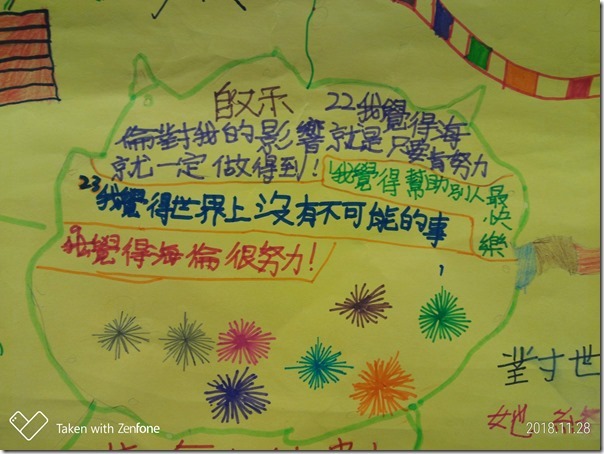 啟示
22我覺得海
倫對我的影響就是只要肯努力
就一定做得到!
我覺得幫助別人最快樂
23我覺得世界上沒有不可能的事
9我覺得海倫很努力!
對世
她
Taken with Zenfone
2018.11.28